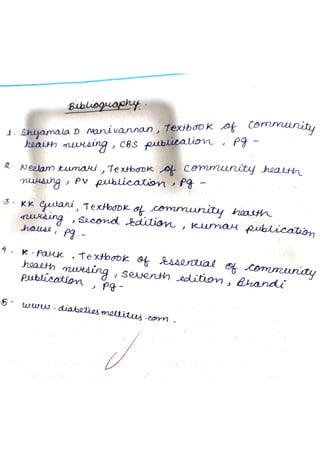 Bibliography.
1. Shyamala D Manivannan, Textbook of Community
health nursing, CBS publication, Pg -
2. Neelam Kumari, Textbook of Community health
nursing, PV publication, Pg -
3. KK Gulani, Textbook of community health
nursing, Second Edition, Kumar publication
house, Pg -
4. K. Park, Textbook of Essential of community
health nursing, Seventh edition, Bhandi
Publication, Pg -
5. www.diabetiesmellitus.com.